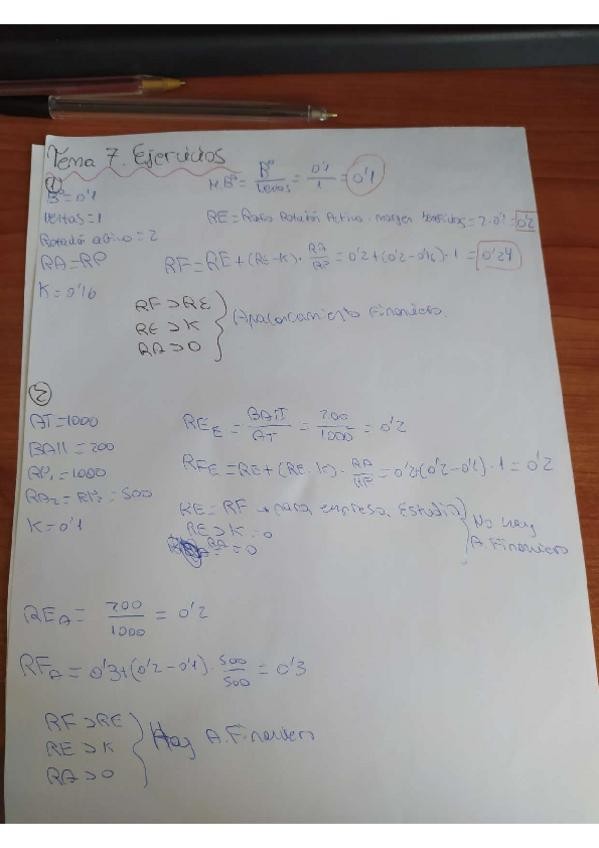 Tema 7. Ejercicios
①
Bº = 0'1
Ventas = 1
Rotación activo = 2
RA = RP
K = 0'16
M.Bº = Bº / Ventas = 0'1 / 1 = 0'1
RE = Ratio Rotación Activo · margen beneficios = 2 · 0'1 = 0'2
RF = RE + (RE - K) · RA / RP = 0'2 + (0'2 - 0'16) · 1 = 0'24
RF > RE
RE > K
RA > 0
} Apalancamiento Financiero.
②
AT = 1000
BAII = 200
RP₁ = 1000
RA₂ = RP₂ = 500
K = 0'1
RE_E = BAII / AT = 200 / 1000 = 0'2
RF_E = RE + (RE - K) · RA / RP = 0'2 + (0'2 - 0'1) · 1 = 0'2
RE = RF → para empresa
RE > K = 0
RA = 0
} No hay A. Financiero
RE_A = 200 / 1000 = 0'2
RF_A = 0'3 + (0'2 - 0'1) · 500 / 500 = 0'3
RF > RE
RE > K
RA > 0
} Hay A. Financiero